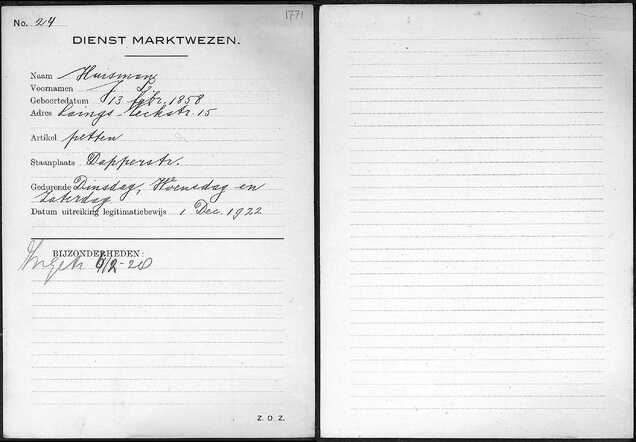 No. 24
1771
DIENST MARKTWEZEN.
Naam Huisman
Voornamen J.
Geboortedatum 13 febr. 1858
Adres Laings-Neckstr 15
Artikel petten
Staanplaats Dapperstr.
Gedurende Dinsdag, Woensdag en
Zaterdag
Datum uitreiking legitimatiebewijs 1 Dec. 1922
BIJZONDERHEDEN:
Z. O. Z.